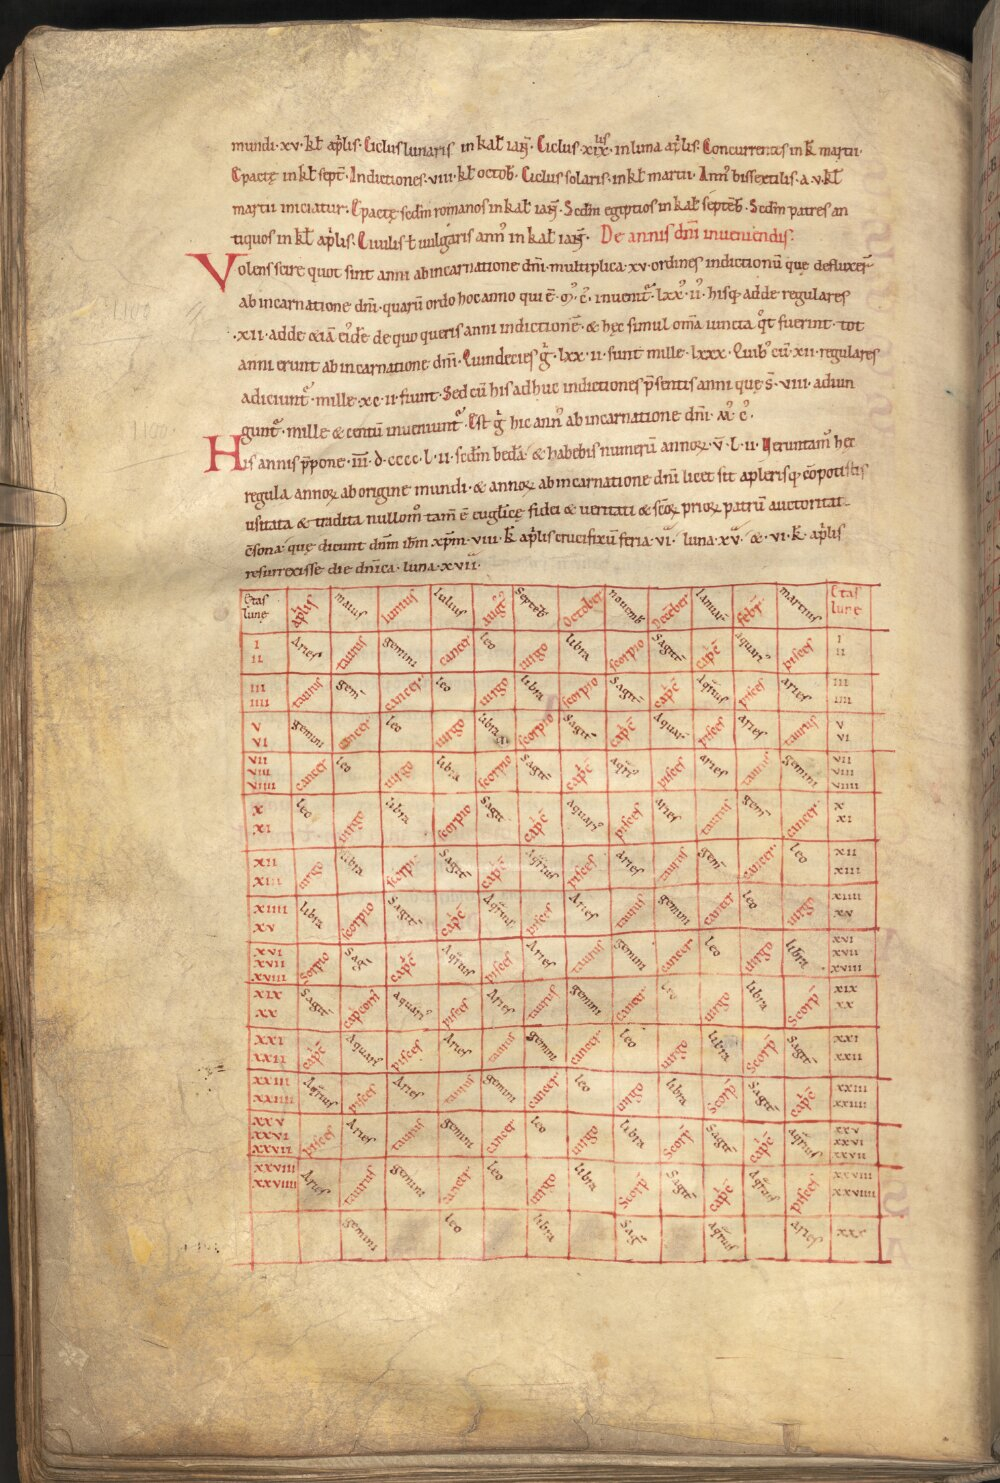 mundi · xv · kł apłis · Ciclus lunaris in kał ianƺ · Ciclus · xix lis · in luna aplis · Concurrentes in k̄ martii ·
Epactę in kł sept̄ · Indictiones · viii · kł octob̄ · Ciclus solaris · in kł martii · Ann᷒ bissextilis · a · v · kł
martii iniciatur · Epactę sed̄m romanos in kał ianƺ · Sed̄m egiptios in kał septēb̄ · Sed̄m patres an
tiquos in kł aplis · Ciuilis ł uulgaris ann᷒ in kał ianƺ · De annis dn̄i inueniendis ·
Volens scire quot sint anni ab incarnatione dn̄i · multiplica · xv · ordines indictionū que defluxer̄
ab incarnatione dn̄i · quarū ordo hoc anno qui ē · · inuenit̄ · lxx · ii · hisq; adde regulares
· xii · adde & iā de quo queris anni indictionē · & hęc simul om̄a iuncta q̊t fuerint · tot
anni erunt ab incarnatione dn̄i · Quindecies g̊ · lxx · ii · sunt mille · lxxx · Quib᷒ cū · xii · regulares
adiciunt̄ · mille · xc · ii · fiunt · Sed cū his adhuc indictiones p̄sentis anni quę s̄ · viii · adiun
gunt̄ · mille & centū inueniunt̄ · Est g̊ hic ann᷒ ab incarnatione dn̄i · M᷒ · c᷒ ·
His annis p̄pone · iii̅ · d · cccc · l · ii · sed̄m bedā · & habebis numerū annoꝝ · v̄ · l · ii · Ueruntam̄ hęc
regula annoꝝ ab origine mundi · & annoꝝ ab incarnatione dn̄i · licet sit a plerisq; cōpotistis
usitata & tradita null om̄ tam̄ ē euglicę fidei & ueritati & sc̄oꝝ prioꝝ patrū auctoritati
cōsona · que dicunt dn̄m ih̄m xp̄m · viii · k̄ aplis crucifixū feria · vi · luna · xv · & · vi · k̄ · aplis
resurrexisse die dn̄ica · luna · xvii ·
Etas lunę aplis maius iunius iulius aug᷒ septēb̄ october nouemb̄ december ianuar̄ febr̄ martius Etas lunę
I II Aries taurus gemini cancer leo uirgo libra scorpio sagitt̄ cap̄c aquari᷒ pisces I II
III IIII taurus gem̄ cancer leo uirgo libra scorpio sagitt̄ cap̄c Aq̄rius pisces aries III IIII
V VI gemini cancer leo uirgo libra scorpio sagitt̄ cap̄c Aquar̄ pisces aries taurus V VI
VII VIII VIIII cancer leo uirgo libra scorpio sagitt̄ cap̄c aq̄ri᷒ pisces aries taurus gemini VII VIII VIIII
X XI leo uirgo libra scorpio sagitt̄ cap̄c aquari᷒ pisces aries taurus gem̄ cancer X XI
XII XIII uirgo libra scorpi᷒ sagitt̄ cap̄c Aq̄rius pisces Aries taurus gem̄ cancer leo XII XIII
XIIII XV libra scorpio sagitt̄ cap̄c Aq̄rius pisces Aries taurus gemini cancer leo uirgo XIIII XV
XVI XVII XVIII Scorpio sagit̄ cap̄c Aq̄rius pisces Aries taurus gemini cancer leo uirgo libra XVI XVII XVIII
XIX XX sagitt̄ capcorn᷒ aquari᷒ pisces Aries taurus gemini cancer leo uirgo libra Scorp̄ XIX XX
XXI XXII cap̄c Aquari᷒ pisces Aries taurus gemini cancer leo uirgo libra Scorp̄ sagitt̄ XXI XXII
XXIII XXIIII Aq̄rius pisces Aries taurus gemini cancer leo uirgo libra Scorp̄ sagitt̄ cap̄c XXIII XXIIII
XXV XXVI XXVII pisces Aries taurus gemini cancer leo uirgo libra Scorp̄ sagitt̄ cap̄c aq̄rius XXV XXVI XXVII
XXVIII XXVIIII Aries taurus gemini cancer leo uirgo libra Scorp̄ sagitt̄ cap̄c Aq̄rius pisces XXVIII XXVIIII
gemini leo libra sagit̄ aq̄rius aries XXX